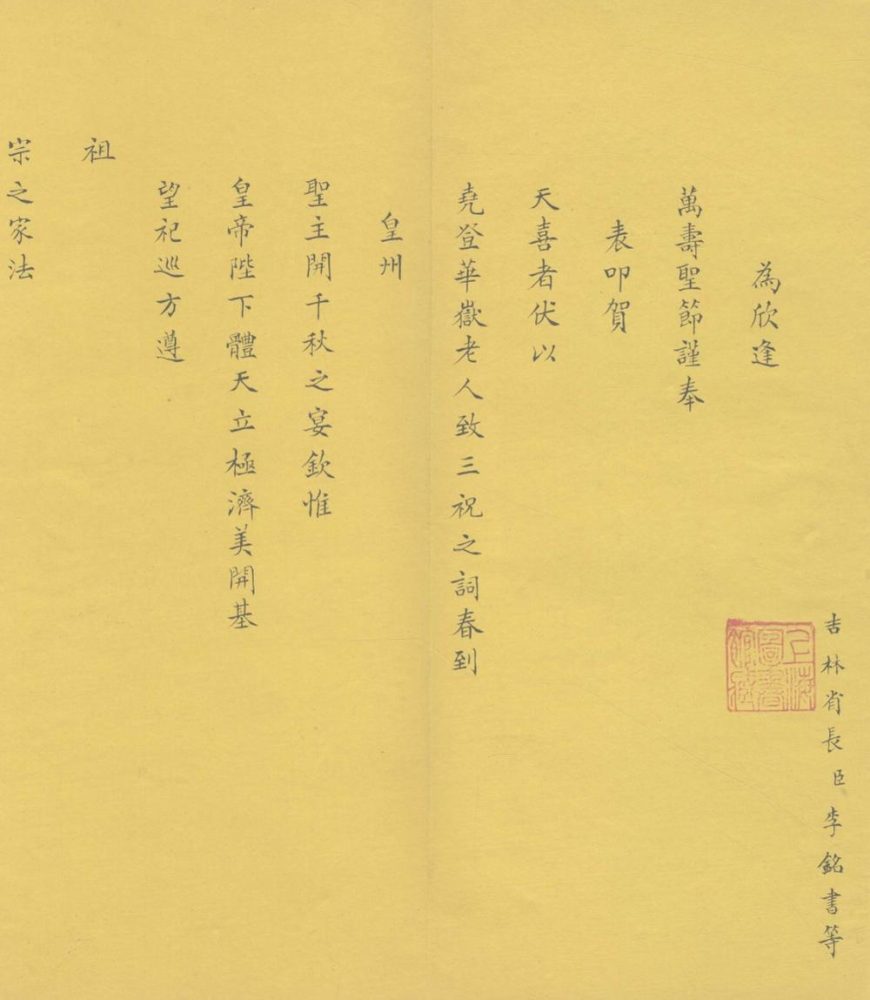 吉林省長臣李銘書等
上海圖書館藏
為欣逢
萬壽聖節謹奉
表叩賀
天喜者伏以
堯登華嶽老人致三祝之詞春到
皇州
聖主開千秋之宴欽惟
皇帝陛下體天立極濟美開基
望祀巡方遵
祖
宗之家法